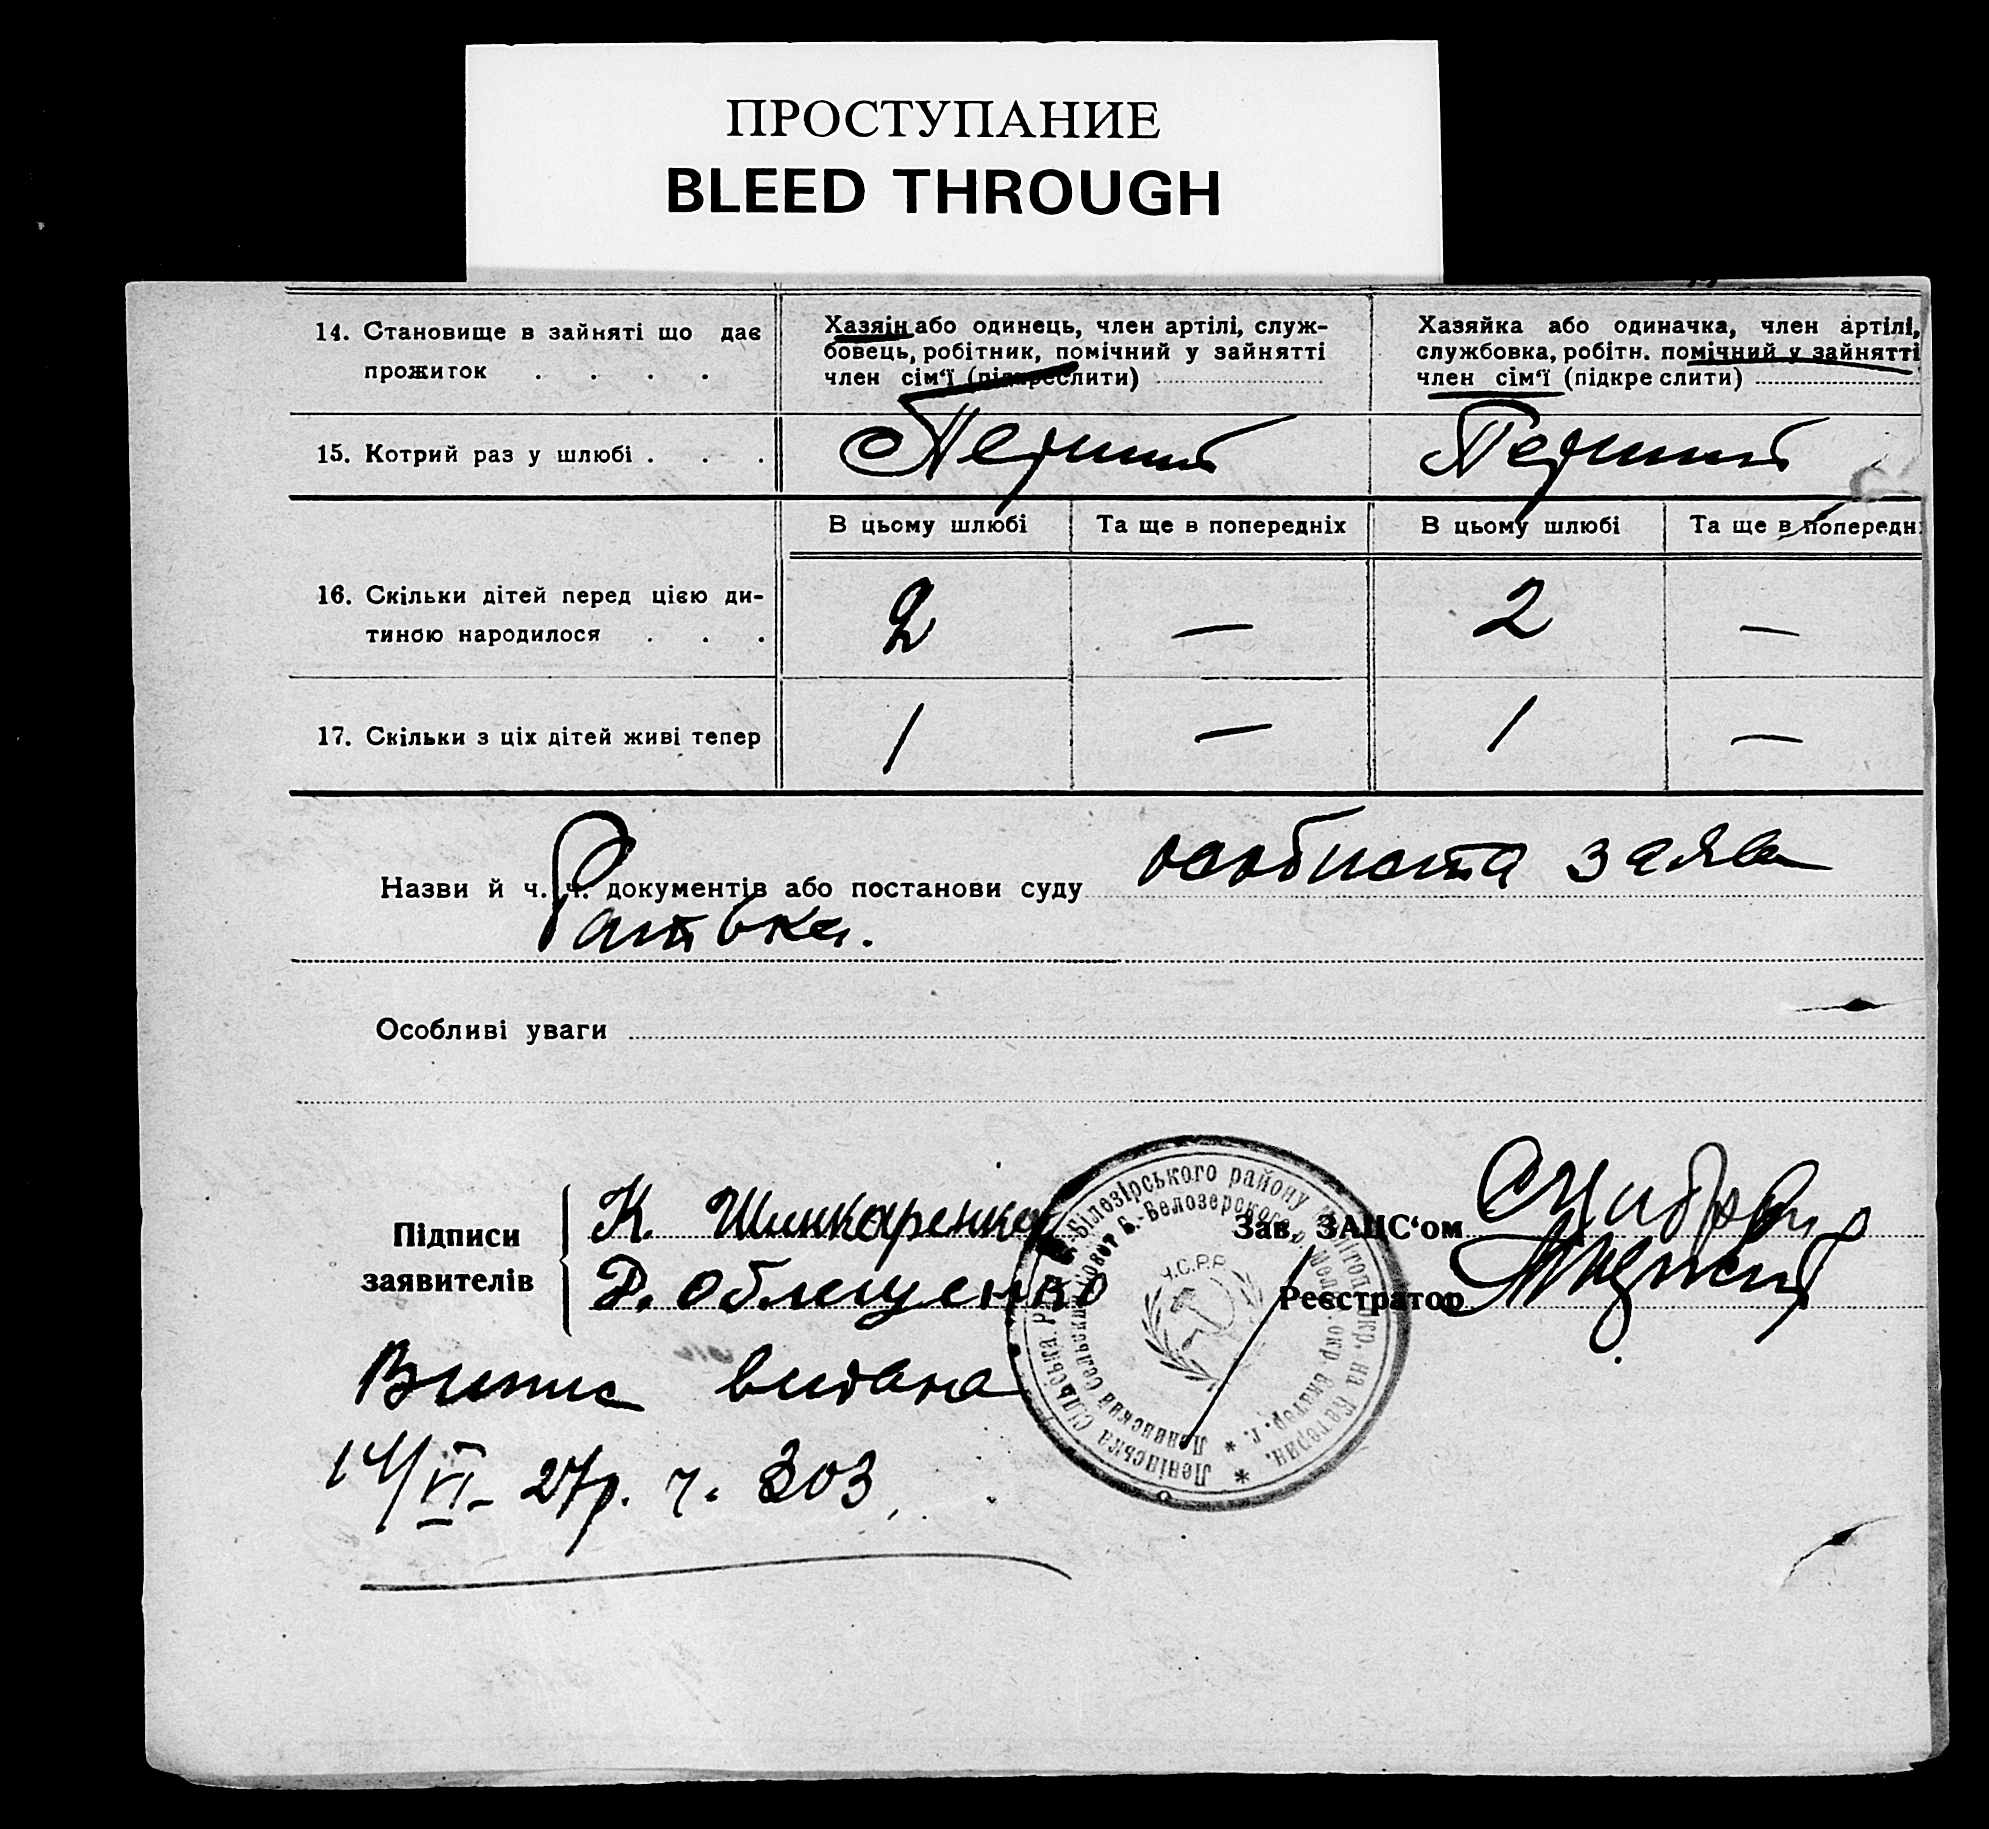 ПРОСТУПАНИЕ
BLEED THROUGH
14. Становище в зайняті що дає прожиток . . . .
Хазяїн або одинець, член артілі, служ-
бовець, робітник, помічний у зайнятті
член сім‘ї (підкреслити)
Хазяйка або одиначка, член артілі,
службовка, робітн. помічний у зайнятті
член сім‘ї (підкре слити)
15. Котрий раз у шлюбі . . .
Перший
Перший
В цьому шлюбі
Та ще в попередніх
В цьому шлюбі
Та ще в попередн
16. Скільки дітей перед цією ди-
тиною народилося . . .
2 — 2 —
17. Скільки з ціх дітей живі тепер
1 — 1 —
Назви й ч. ч. документів або постанови суду особиста заява
Батька.
Особливі уваги
Підписи
заявителів
К. Шинкаренко
Д. Облещенко
Зав. ЗАЦС‘ом
Реєстратор
Ч.С.Р.Р.
Ленінська Сільська
Білозірського району
Випис видана
14/VI- 27р. ч. 303